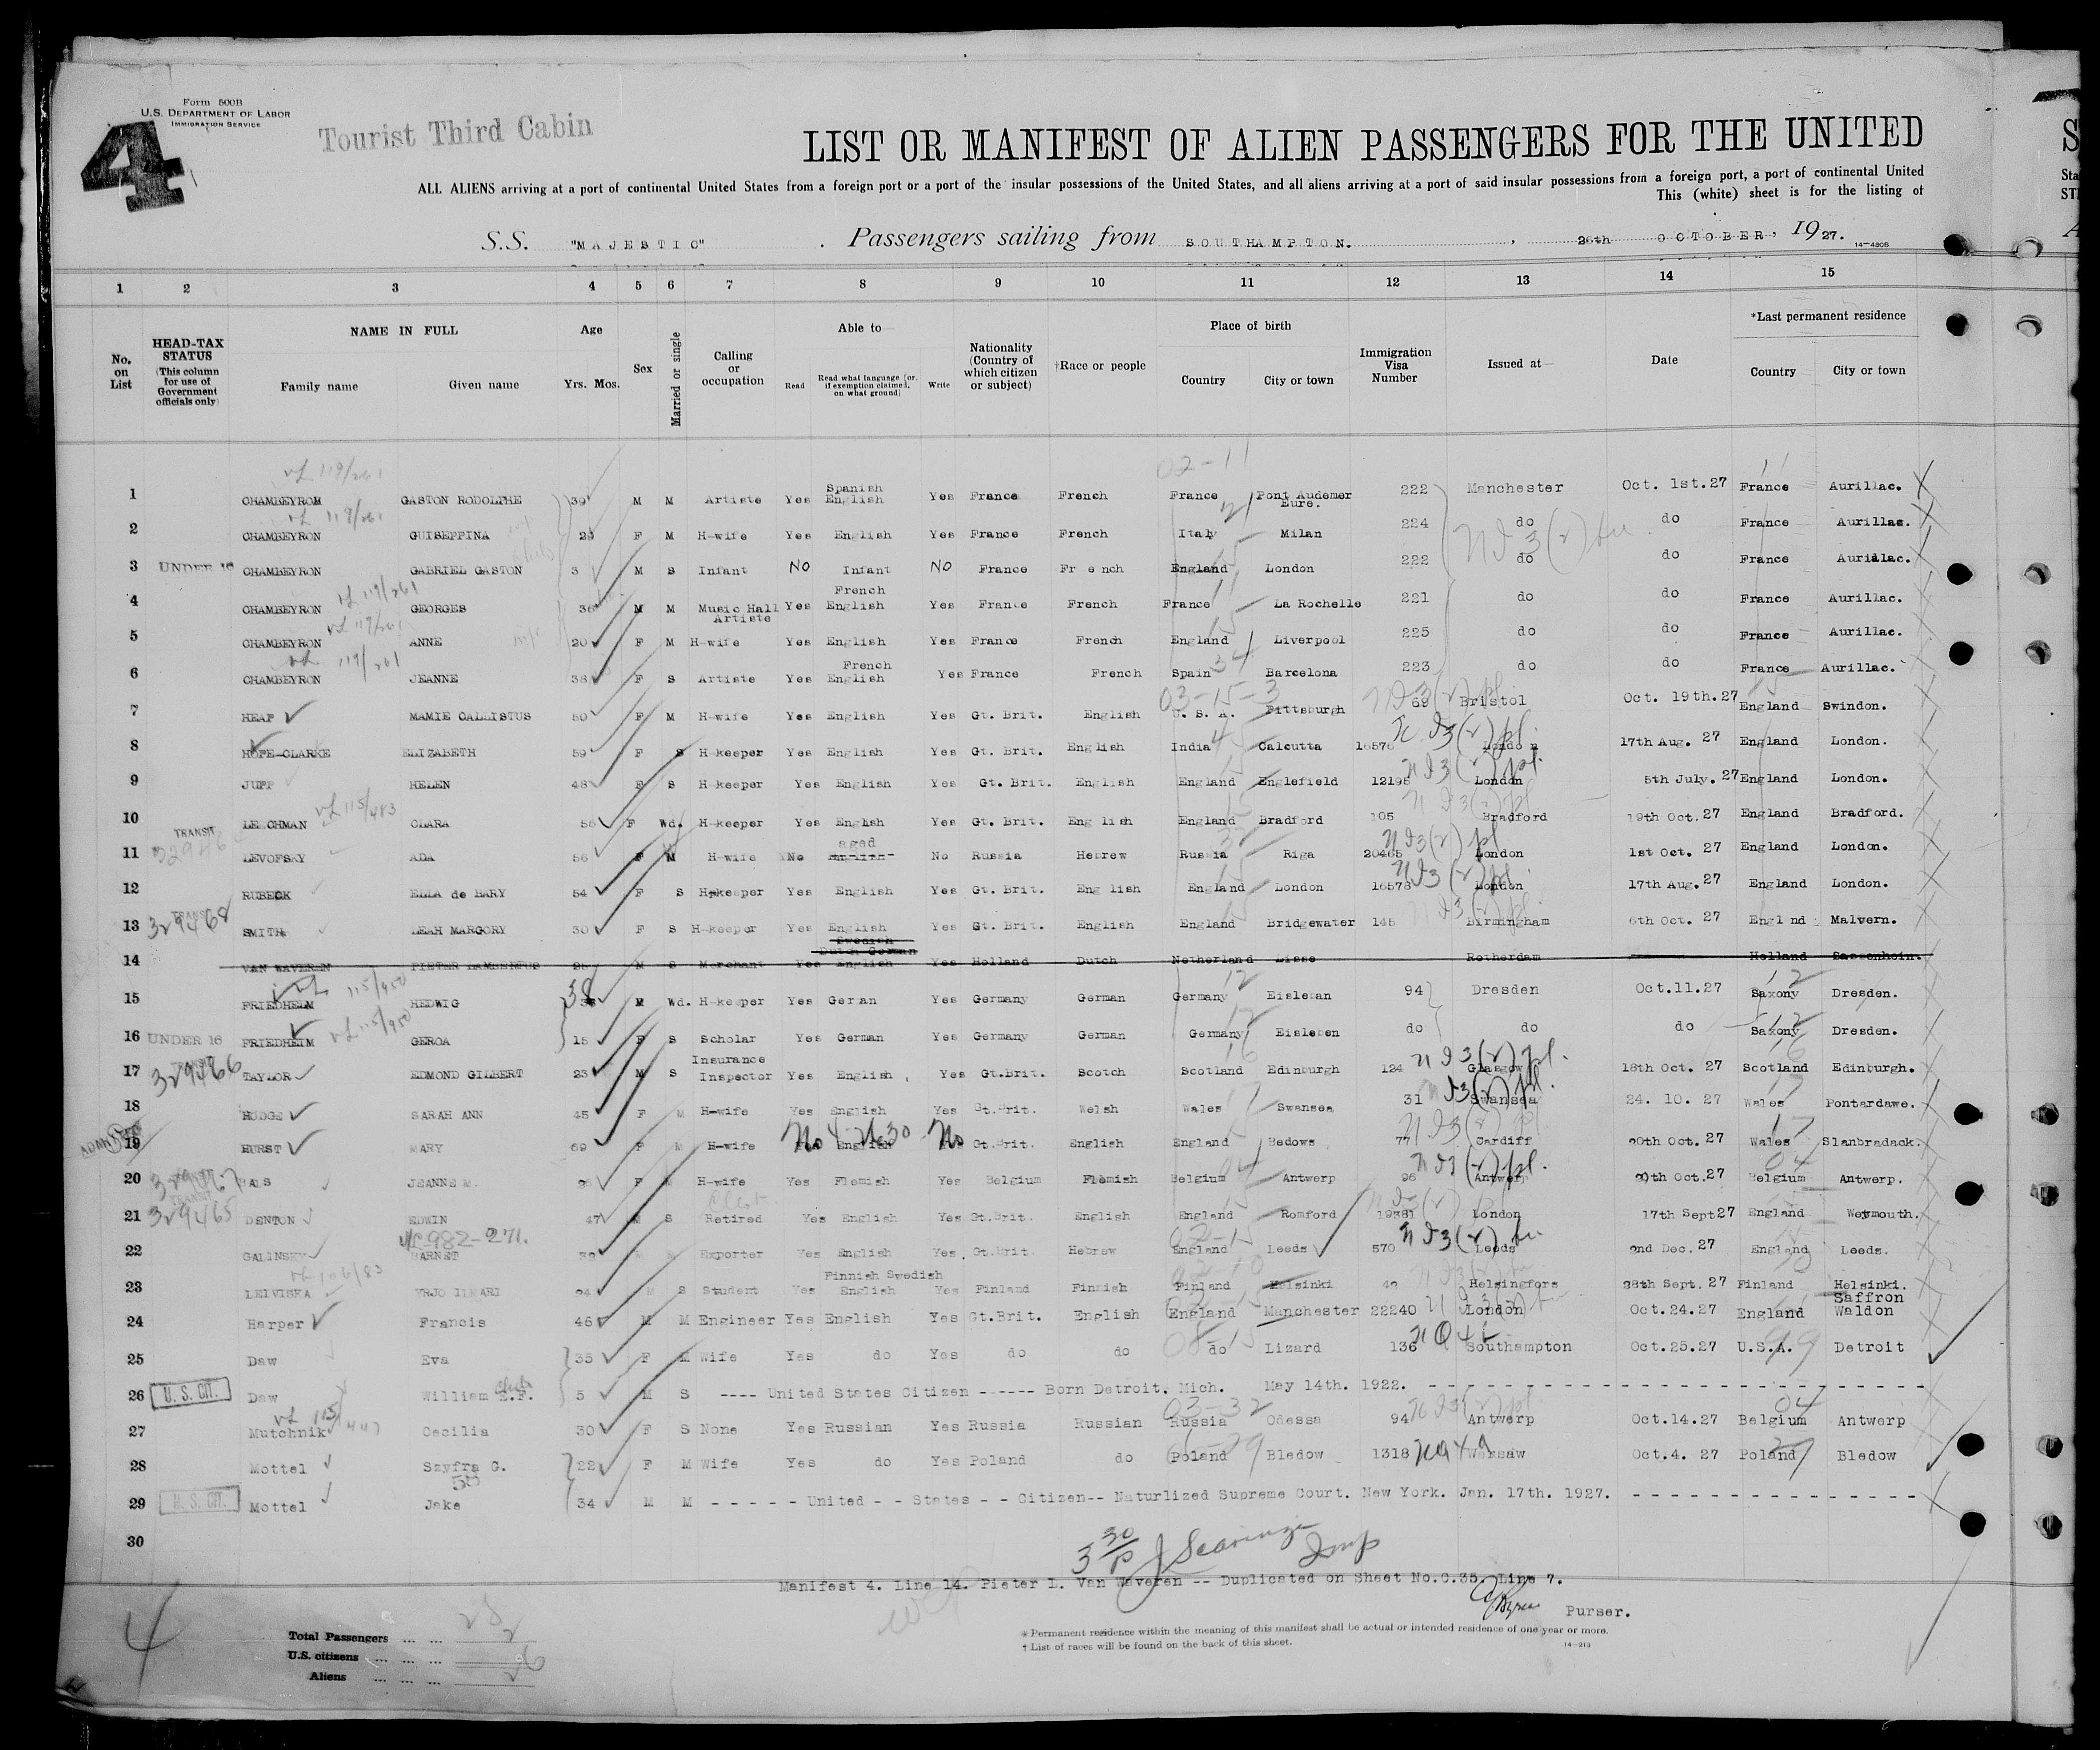 Form 500B
U.S. DEPARTMENT OF LABOR
IMMIGRATION SERVICE
4
Tourist Third Cabin
LIST OR MANIFEST OF ALIEN PASSENGERS FOR THE UNITED
ALL ALIENS arriving at a port of continental United States from a foreign port or a port of the insular possessions of the United States, and all aliens arriving at a port of said insular possessions from a foreign port, a port of continental United
This (white) sheet is for the listing of
S.S. "MAJESTIC" . Passengers sailing from SOUTHAMPTON. , 26th OCTOBER, 1927.
14-430B
1 2 3 4 5 6 7 8 9 10 11 12 13 14 15
No. on List
HEAD-TAX STATUS (This column for use of Government officials only)
NAME IN FULL
Family name Given name
Age
Yrs. Mos.
Sex
Married or single
Calling or occupation
Able to
Read
Read what language [or, if exemption claimed, on what ground]
Write
Nationality (Country of which citizen or subject)
†Race or people
Place of birth
Country City or town
Immigration Visa Number
Issued at
Date
*Last permanent residence
Country City or town
1 CHAMBEYRON GASTON RODOLPHE 39 M M Artiste Yes Spanish English Yes France French France Pont Audemer Eure. 222 Manchester Oct. 1st.27 France Aurillac.
2 CHAMBEYRON GUISEPPINA 29 F M H-wife Yes English Yes France French Italy Milan 224 do do France Aurillac.
3 UNDER 16 CHAMBEYRON GABRIEL GASTON 3 M S Infant NO Infant NO France French England London 222 do do France Aurillac.
4 CHAMBEYRON GEORGES 36 M M Music Hall Artiste Yes French English Yes France French France La Rochelle 221 do do France Aurillac.
5 CHAMBEYRON ANNE 20 F M H-wife Yes English Yes France French England Liverpool 225 do do France Aurillac.
6 CHAMBEYRON JEANNE 38 F S Artiste Yes French English Yes France French Spain Barcelona 223 do do France Aurillac.
7 HEAP MAMIE CALLISTUS 50 F M H-wife Yes English Yes Gt. Brit. English U. S. A. Pittsburgh 69 Bristol Oct. 19th.27 England Swindon.
8 HOPE-CLARKE ELIZABETH 59 F S H-keeper Yes English Yes Gt. Brit. English India Calcutta 16576 London 17th Aug. 27 England London.
9 JUPP HELEN 48 F S H-keeper Yes English Yes Gt. Brit. English England Englefield 12196 London 5th July. 27 England London.
10 LEECHMAN CLARA 56 F Wd. H-keeper Yes English Yes Gt. Brit. English England Bradford 105 Bradford 19th Oct. 27 England Bradford.
11 TRANSIT LEVOFSKY ADA 56 F M H-wife No aged No Russia Hebrew Russia Riga 20465 London 1st Oct. 27 England London.
12 RUBECK ELLA de BARY 54 F S H-keeper Yes English Yes Gt. Brit. English England London 16578 London 17th Aug. 27 England London.
13 329468 SMITH LEAH MARGORY 30 F S H-keeper Yes English Yes Gt. Brit. English England Bridgewater 145 Birmingham 6th Oct. 27 Engl nd Malvern.
14 VAN WAVEREN PIETER LAMBERTUS M S Merchant Yes Swedish Dutch German English Yes Holland Dutch Netherland Lisse Rotterdam Holland Sassenhein.
15 FRIEDHEIM HEDWIG 38 Wd. H-keeper Yes Geran Yes Germany German Germany Eisleben 94 Dresden Oct.11.27 Saxony Dresden.
16 UNDER 16 FRIEDHEIM GERDA 15 F S Scholar Yes German Yes Germany German Germany Eisleben do do do Saxony Dresden.
17 329466 TAYLOR EDMOND GILBERT 23 M S Insurance Inspector Yes English Yes Gt.Brit. Scotch Scotland Edinburgh 124 Glasgow 18th Oct. 27 Scotland Edinburgh.
18 HODGE SARAH ANN 45 F M H-wife Yes English Yes Gt.Brit. Welsh Wales Swansea 31 Swansea 24. 10. 27 Wales Pontardawe.
19 HURST MARY 69 F M H-wife No English No Gt.Brit. English England Bedows 77 Cardiff 20th Oct. 27 Wales Slanbradack.
20 BALS JEANNE M. F M H-wife Yes Flemish Yes Belgium Flemish Belgium Antwerp 96 Antwerp 20th Oct.27 Belgium Antwerp.
21 329465 DENTON EDWIN 47 M S Retired Yes English Yes Gt.Brit. English England Romford 19381 London 17th Sept 27 England Weymouth.
22 GALINSKY BARNET Exporter Yes English Yes Gt.Brit. Hebrew England Leeds 570 Leeds 2nd Dec. 27 England Leeds.
23 LEIVISKA YRJO ILMARI 24 M S Student Yes Finnish Swedish English Yes Finland Finnish Finland Helsinki Helsingfors 28th Sept. 27 Finland Helsinki.
24 Harper Francis 46 M M Engineer Yes English Yes Gt.Brit. English England Manchester 22240 London Oct.24.27 England Saffron Waldon
25 Daw Eva 35 F M Wife Yes do Yes do do do Lizard 136 Southampton Oct.25.27 U.S.A. Detroit
26 U. S. CIT. Daw William E.F. 5 M S ---- United States Citizen ------ Born Detroit, Mich. May 14th. 1922.
27 Mutchnik Cecilia 30 F S None Yes Russian Yes Russia Russian Russia Odessa 94 Antwerp Oct.14.27 Belgium Antwerp
28 Mottel Szyfra G. 22 F M Wife Yes do Yes Poland do Poland Bledow 1318 Warsaw Oct.4. 27 Poland Bledow
29 U. S. CIT. Mottel Jake 34 M M - - - - - United - - States - - Citizen-- Naturlized Supreme Court. New York. Jan. 17th. 1927.
30
3 30/P
Manifest 4. Line 14. Pieter L. Van Waveren -- Duplicated on Sheet No.C.35. Line 7.
Purser.
4
Total Passengers ... ... 28
U.S. citizens ... ... ... 2
Aliens ... ... ... 26
* Permanent residence within the meaning of this manifest shall be actual or intended residence of one year or more.
† List of races will be found on the back of this sheet.
14-213